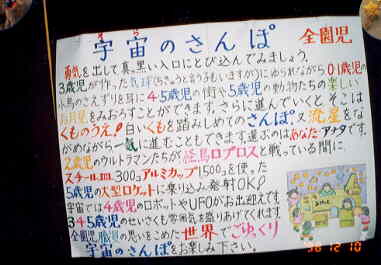 宇宙のさんぽ 全園児
そら
勇気を出して真黒い入口にとび込んでみましょう。
3歳児が作った気球(ちきゅうと言う子もいますが)にゆられながら01歳児の
小鳥のさえずりを耳に45歳児の街や5歳児の動物たちの楽しい
お月見をみおろすことができます。さらに進んでいくとそこは
くものうえ!白いくもを踏みしめてのさんぽ又流星をな
がめながら一気に進むこともできます選ぶのはあなた・アナタです。
2歳児のウルトラマンたちが怪鳥ロプロスと戦っている間に
スチール缶300コアルミカップ1500コを使った
5歳児の大型ロケットに乗り込み発射OK!
宇宙では4歳児のロボットやUFOがお出迎えです
345歳児のせいざくも雰囲気を盛りあげてくれます
全園児職員の思いをこめた世界でごゆっくり
宇宙のさんぽをお楽しみ下さい。
'96 12 10